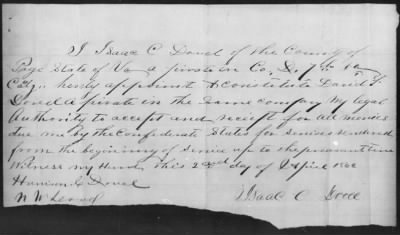 I Isaac C Dovel of the County of
Page State of Va a private in Co. D. 7th Va
Cav. hereby appoint & constitute David F.
Dovel a private in the same company my legal
Authority to accept and receipt for all monies
due me by the Confederate States for services rendered
from the beginning of service up to the present time
Witness my hand this 2nd day of April 1862
Harrison Dovel
Isaac C Dovel
N W